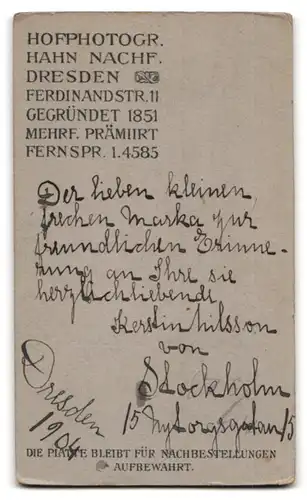 HOFPHOTOGR.
HAHN NACHF.
DRESDEN
FERDINANDSTR. 11
GEGRÜNDET 1851
MEHRF. PRÄMIIRT
FERNSPR. 1.4585
Der lieben kleinen
frechen Marka zur
freundlichen Erinne-
rung an Ihre sie
herzlichliebende
Kerstin Nilsson
von
Stockholm
15 Nytorgsgatan 15
Dresden
1904
DIE PLATTE BLEIBT FÜR NACHBESTELLUNGEN
AUFBEWAHRT.